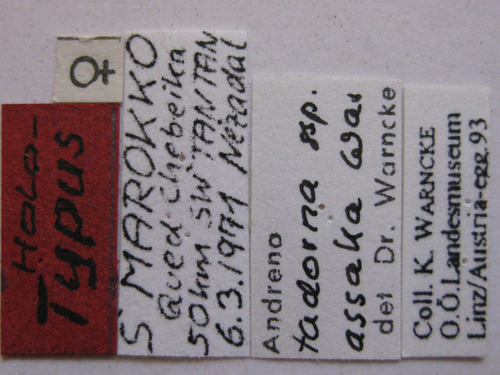 ♀
Holo-
Typus
S MAROKKO
Oued Chebeika
50km SW TANTAN
6.3.1971 Nezadal
Andrena
tadorna ssp.
assaka War
det Dr. Warncke
Coll. K. WARNCKE
O.Ö. Landesmuseum
Linz/Austria-egg.93